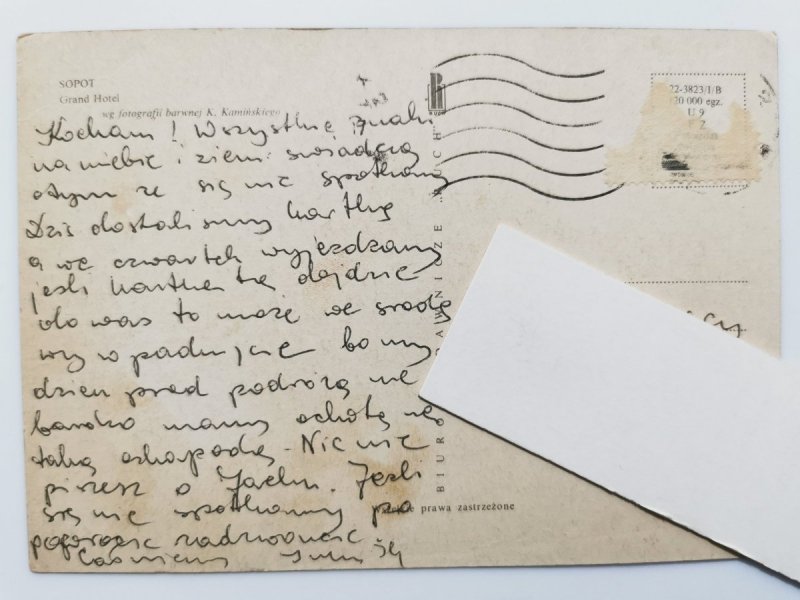 SOPOT
Grand Hotel
wg fotografii barwnej K. Kamińskiego
Kochani! Wszystkie znaki
na niebie i ziemi świadczą
otym że się nie spotkamy
Dziś dostaliśmy kartkę
a we czwartek wyjeżdżamy
jeśli kartka ta dojdzie
do was to może we środę
wy wpadnijcie bo my
dzień przed podróżą nie
bardzo mamy ochotę na
taką eskapadę. Nic nie
piszesz o Jacku. Jeśli
się nie spotkamy po
powrocie zadzwonię
Całujemy
22-3823/1/B
120 000 egz.
U 9
BIURO
WNICZE „RUCH"
prawa zastrzeżone